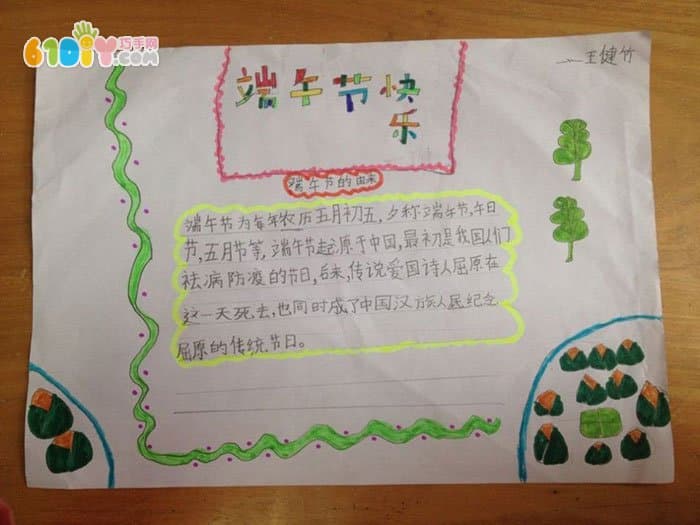 61DIY巧手网
.com
王健竹
端午节快
乐
端午节的由来
端午节为每年农历五月初五，夕称端午节，午日
节，五月节等，端午节起源于中国，最初是我国人们
祛病防疫的节日，后来，传说爱国诗人屈原在
这一天死去，也同时成了中国汉族人民纪念
屈原的传统节日。